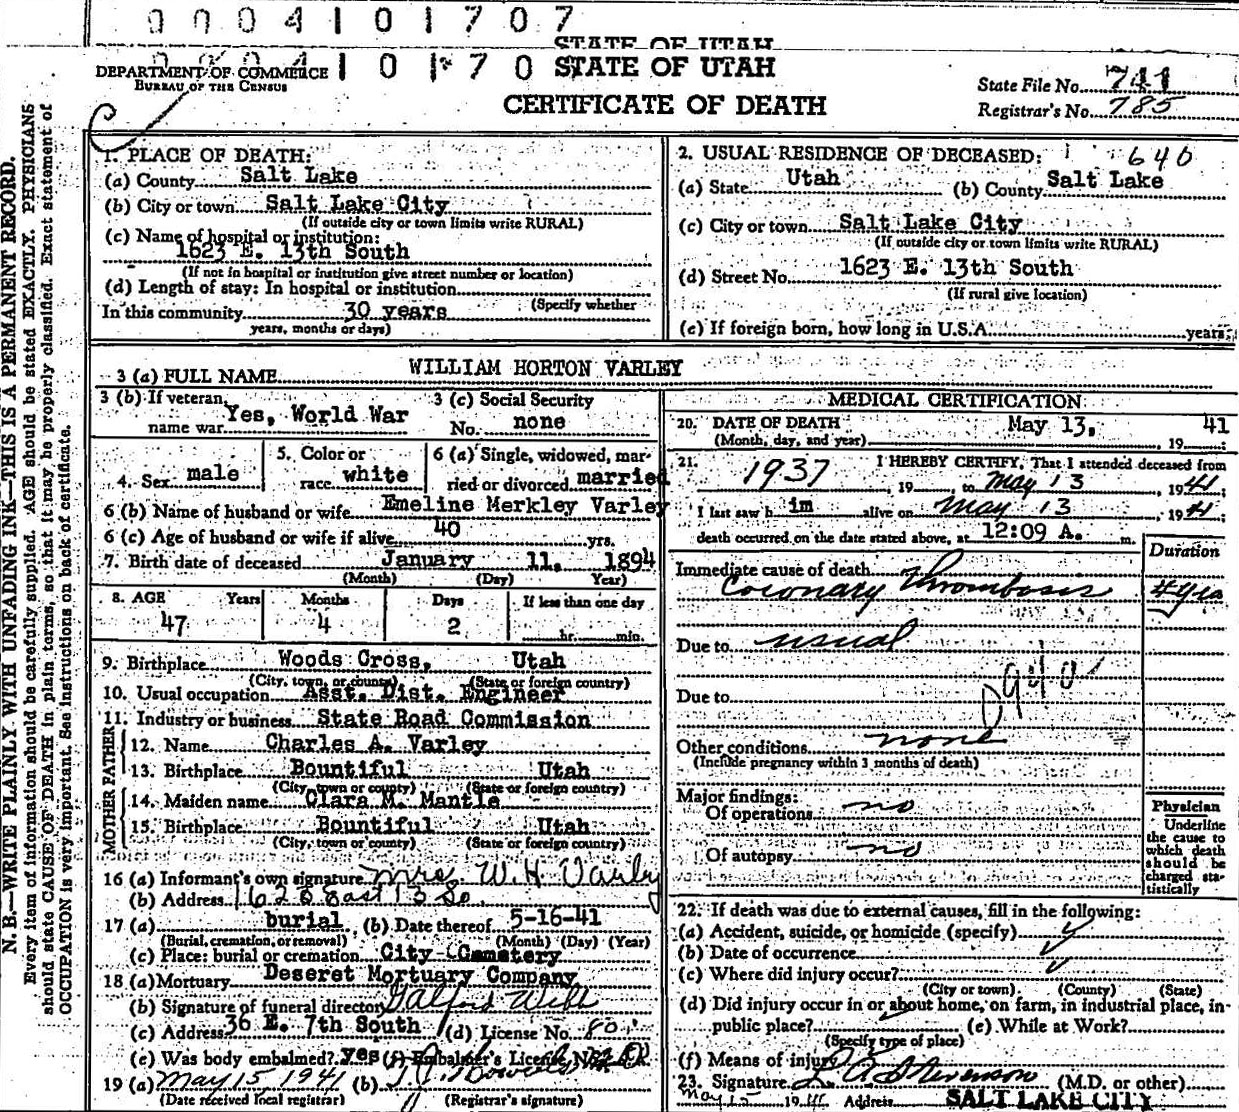 0004101707
STATE OF UTAH
DEPARTMENT OF COMMERCE
BUREAU OF THE CENSUS
STATE OF UTAH
CERTIFICATE OF DEATH
State File No. 741
Registrar's No. 785
N. B.—WRITE PLAINLY WITH UNFADING INK—THIS IS A PERMANENT RECORD.
Every item of information should be carefully supplied. AGE should be stated EXACTLY. PHYSICIANS
should state CAUSE OF DEATH in plain terms, so that it may be properly classified. Exact statement of
OCCUPATION is very important. See instructions on back of certificate.
1. PLACE OF DEATH:
(a) County Salt Lake
(b) City or town Salt Lake City
(If outside city or town limits write RURAL)
(c) Name of hospital or institution:
1623 E. 13th South
(If not in hospital or institution give street number or location)
(d) Length of stay: In hospital or institution
(Specify whether
In this community 30 years
years, months or days)
2. USUAL RESIDENCE OF DECEASED: 640
(a) State Utah (b) County Salt Lake
(c) City or town Salt Lake City
(If outside city or town limits write RURAL)
(d) Street No. 1623 E. 13th South
(If rural give location)
(e) If foreign born, how long in U.S.A. years
3 (a) FULL NAME WILLIAM HORTON VARLEY
3 (b) If veteran, name war Yes, World War
3 (c) Social Security No. none
4. Sex male
5. Color or race white
6 (a) Single, widowed, married or divorced married
6 (b) Name of husband or wife Emeline Merkley Varley
6 (c) Age of husband or wife if alive 40 yrs.
7. Birth date of deceased January 11, 1894
(Month) (Day) Year)
8. AGE Years Months Days If less than one day
47 4 2 hr. min.
9. Birthplace Woods Cross, Utah
(City, town, or county) (State or foreign country)
10. Usual occupation Asst. Dist. Engineer
11. Industry or business State Road Commission
FATHER
12. Name Charles A. Varley
13. Birthplace Bountiful Utah
(City, town or county) (State or foreign country)
MOTHER
14. Maiden name Clara M. Mantle
15. Birthplace Bountiful Utah
(City, town or county) (State or foreign country)
16 (a) Informant's own signature Mrs. W. H Varley
(b) Address 1623 East 13 So.
17 (a) burial (b) Date thereof 5-16-41
(Burial, cremation, or removal) (Month) (Day) (Year)
(c) Place: burial or cremation City Cemetery
18 (a) Mortuary Deseret Mortuary Company
(b) Signature of funeral director
(c) Address 36 E. 7th South (d) License No. 80
(e) Was body embalmed? yes (f) Embalmer's License No.
19 (a) May 15 1941 (b)
(Date received local registrar) (Registrar's signature)
MEDICAL CERTIFICATION
20. DATE OF DEATH May 13, 1941
(Month, day, and year)
21. I HEREBY CERTIFY, That I attended deceased from
1937, 19 to May 13, 1941
I last saw h im alive on May 13, 1941
death occurred on the date stated above, at 12:09 A. m.
Duration
Immediate cause of death
Coronary Thrombosis 4 yrs
Due to usual
Due to
940
Other conditions none
(Include pregnancy within 3 months of death)
Major findings:
Of operations no
Of autopsy no
Physician
Underline
the cause to
which death
should be
charged sta-
tistically
22. If death was due to external causes, fill in the following:
(a) Accident, suicide, or homicide (specify)
(b) Date of occurrence
(c) Where did injury occur?
(City or town) (County) (State)
(d) Did injury occur in or about home, on farm, in industrial place, in
public place? (e) While at Work?
(Specify type of place)
(f) Means of injury
23. Signature L. A. Stevenson (M.D. or other)
May 15 1941 Address SALT LAKE CITY